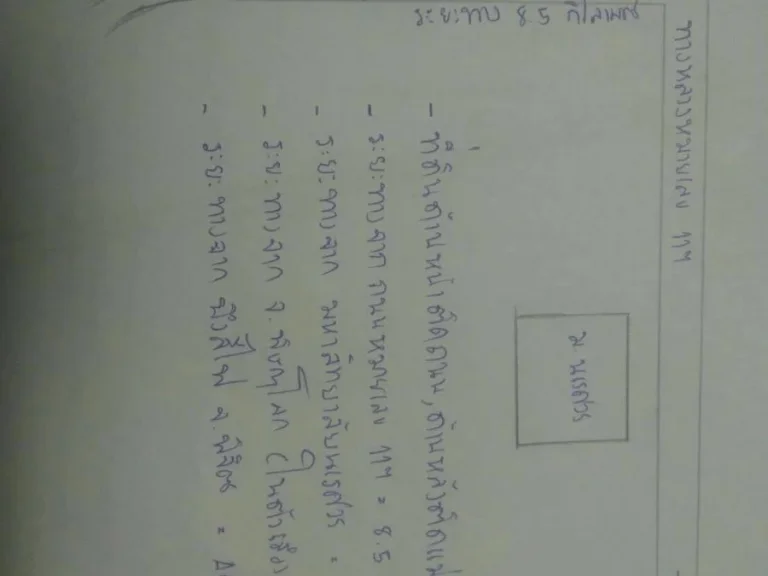 ทางหลวงหมายเลข 117
ระยะทาง 8.5 กิโลเมตร
ม. นเรศวร
- ที่ดินด้านหน้าติดถนน, ด้านหลังติดแม่
- ระยะทางจาก ถนนหมายเลข 117 = 8.5
- ระยะทางจาก มหาวิทยาลัยนเรศวร =
- ระยะทางจาก จ. พิษณุโลก (ในตัวเมือง
- ระยะทางจาก จ. พิจิตร =